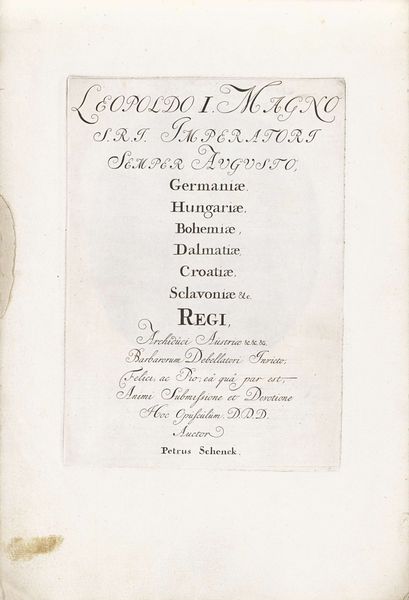 LEOPOLDO I. MAGNO
S.R.I. IMPERATORI
SEMPER AUGUSTO,
Germaniæ,
Hungariæ,
Bohemiæ,
Dalmatiæ,
Croatiæ,
Sclavoniæ &c.
REGI,
Archiduci Austriæ &c.&c.&c.
Barbarorum Debellatori Invicto,
Felici, ac Pio, eâ quâ par est,
Animi Submissione et Devotione
Hoc Opusculum D.D.D.
Auctor
Petrus Schenck.